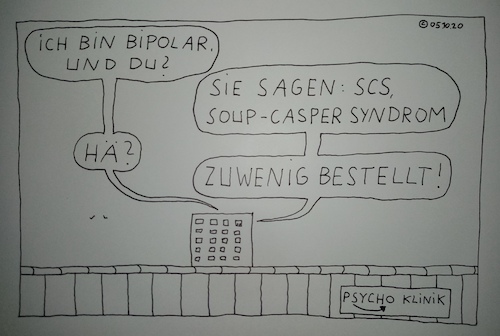 © 05.10.20
ICH BIN BIPOLAR,
UND DU?
SIE SAGEN: SCS,
SOUP-CASPER SYNDROM
HÄ?
ZUWENIG BESTELLT!
PSYCHO KLINIK